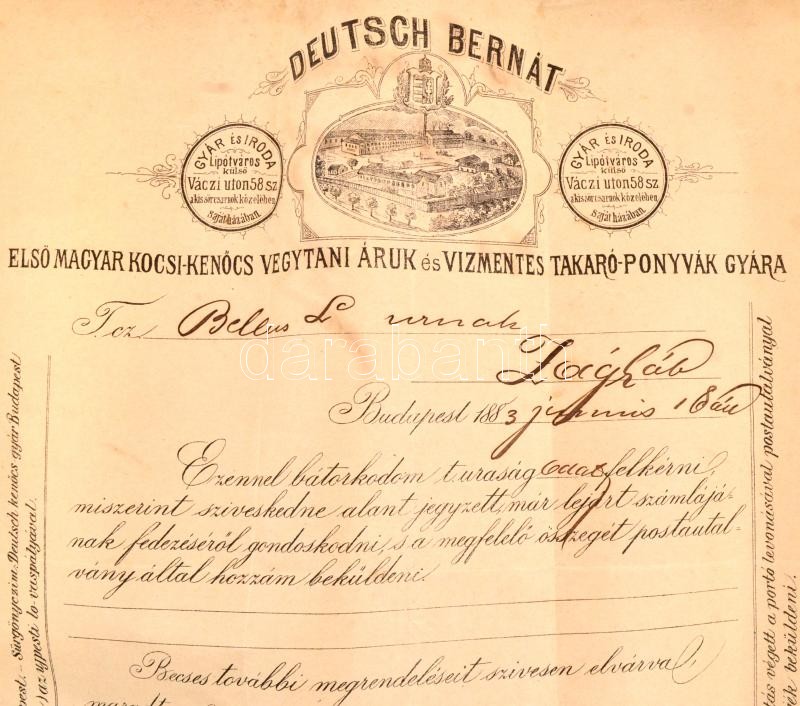 DEUTSCH BERNÁT
GYÁR ÉS IRODA
Lipótváros
külső
Váczi uton 58 sz
a kis sörcsarnok közelében
saját házában.
GYÁR ÉS IRODA
Lipótváros
külső
Váczi uton 58 sz
a kis sörcsarnok közelében
saját házában.
ELSŐ MAGYAR KOCSI-KENŐCS VEGYTANI ÁRUK és VIZMENTES TAKARÓ-PONYVÁK GYÁRA
T. cz. Bellus L urnak
Zágráb
Budapest 1883 junius 18án
darabanth
Ezennel bátorkodom t. uraság odat felkérni,
miszerint sziveskedne alant jegyzett, már lejárt számlájá-
nak fedezéséről gondoskodni, s a megfelelő összegét postautal-
vány által hozzám beküldeni.
Becses további megrendeléseit szivesen elvárva
maradt
pest. – Sürgönyczim: Deutsch kenőcs gyár Budapest
az ujpesti ló-vaspályával.
tás végett a portó levonásával postautalványnyal
ék beküldeni.